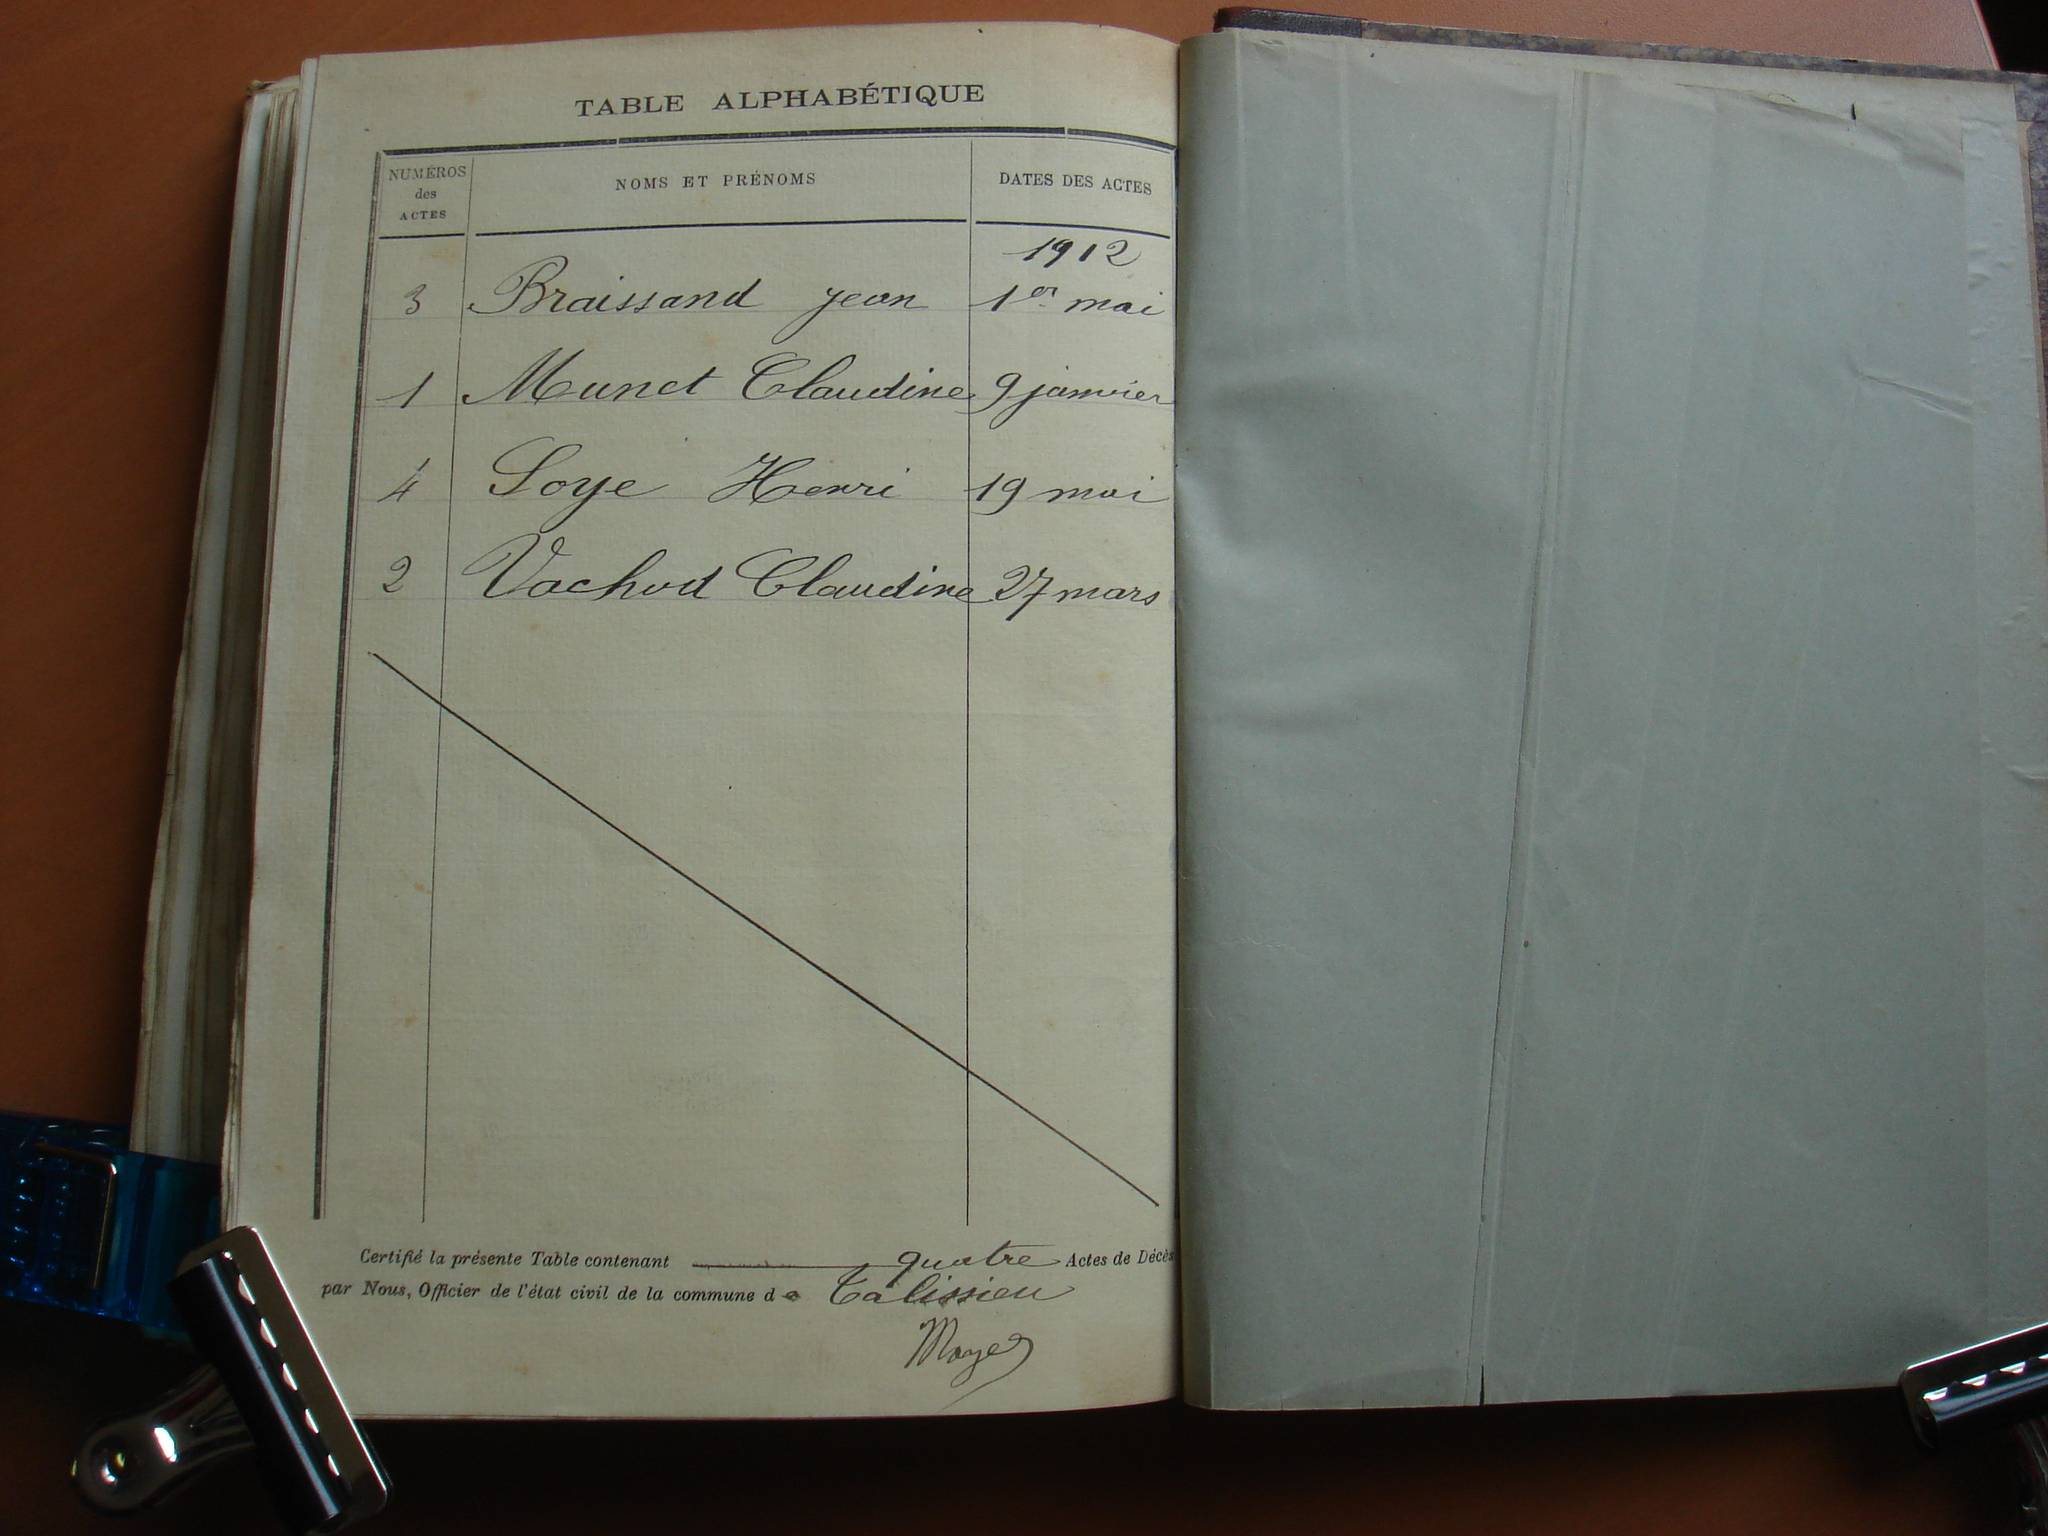 TABLE ALPHABÉTIQUE
NUMÉROS des ACTES NOMS ET PRÉNOMS DATES DES ACTES
1912
3 Braissand jean 1er mai
1 Munet Claudine 9 janvier
4 Soye Henri 19 mai
2 Vachod Claudine 27 mars
Certifié la présente Table contenant quatre Actes de Décès
par Nous, Officier de l'état civil de la commune de Talissieu